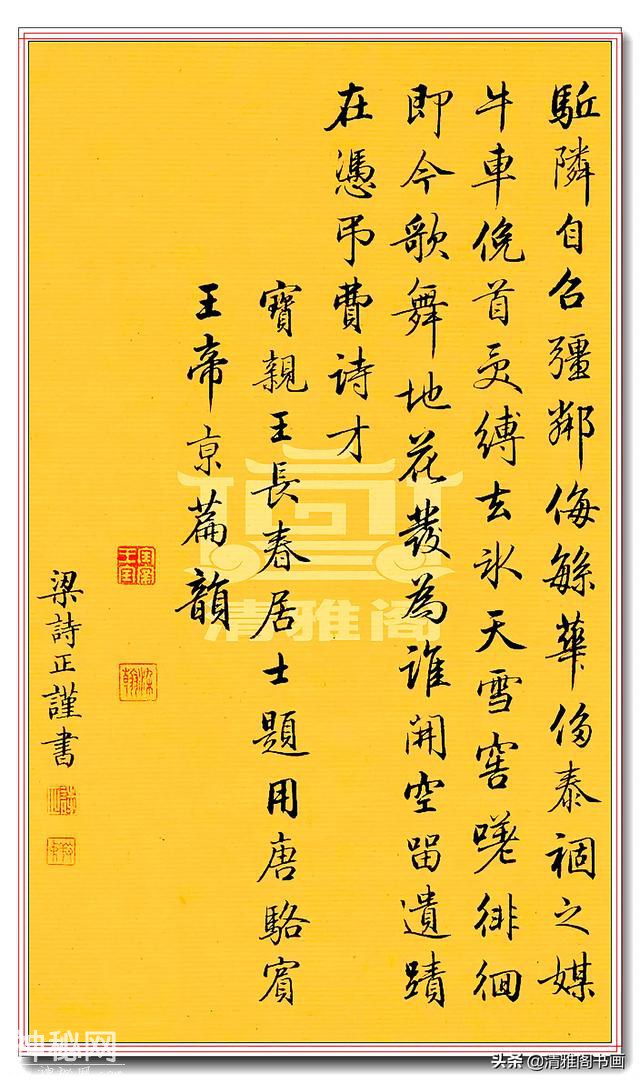 駈隣自召疆鄰侮緐華侈泰禍之媒
牛車俛首受縛去氷天雪窖嗟徘徊
即今歌舞地花發為誰開空留遺蹟
在憑弔費詩才
寶親王長春居士題用唐駱賓
王帝京篇韻
梁詩正謹書
清雅阁
神秘网
头条 @清雅阁书画